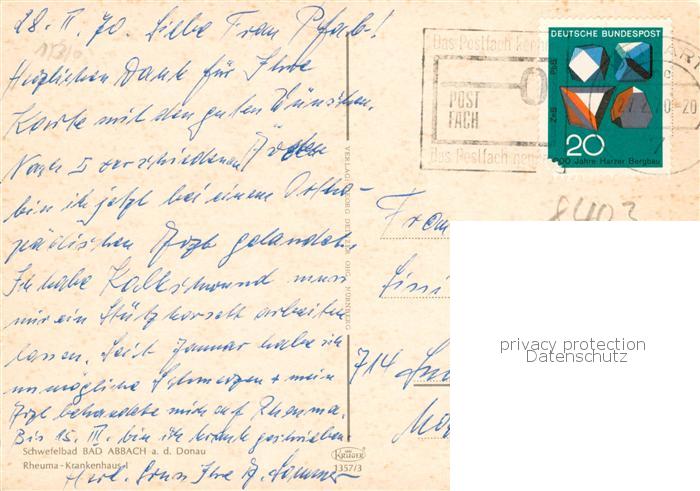 28. II. 70. Liebe Frau Pfab!
Herzlichen Dank für Ihre
Karte mit den guten Wünschen.
Nach 5 verschiedenen
bin ich jetzt bei einem Ortho-
pädischen Arzt gelandet.
Ich habe Kalkschwund muss
mir ein Stützkorsett arbeiten
lassen. Seit Januar habe ich
unmögliche Schmerzen + mein
Arzt behandelte mich auf Rheuma.
Bis 15. III. bin ich krank geschrieben
Herzl. Gruss Ihre
Schwefelbad BAD ABBACH a. d. Donau
Rheuma-Krankenhaus I
KRÜGER
1357/3
Das Postfach
POST
FACH
Das Postfach
DEUTSCHE BUNDESPOST
PbS
ZnS
20
Jahre Harzer Bergbau
8403
Frau
714
privacy protection
Datenschutz